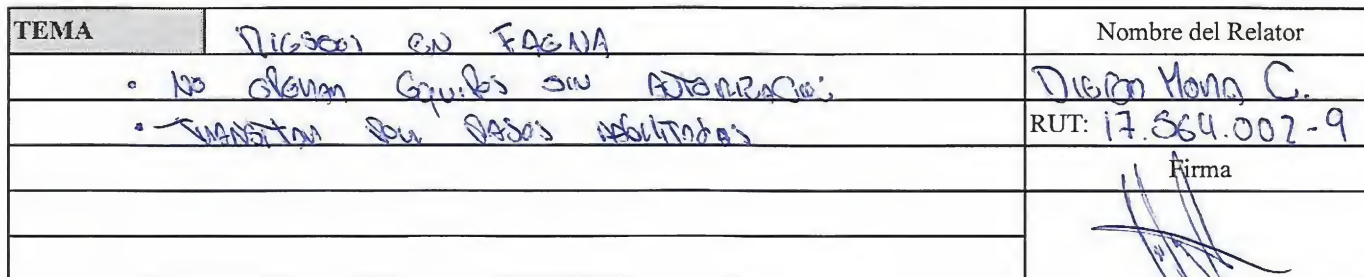 TEMA
Riesgos en FAENA
Nombre del Relator
• No operar Equipos sin Autorización
• Transitar por Pasos Habilitados
RUT: 17.564.002-9
Firma